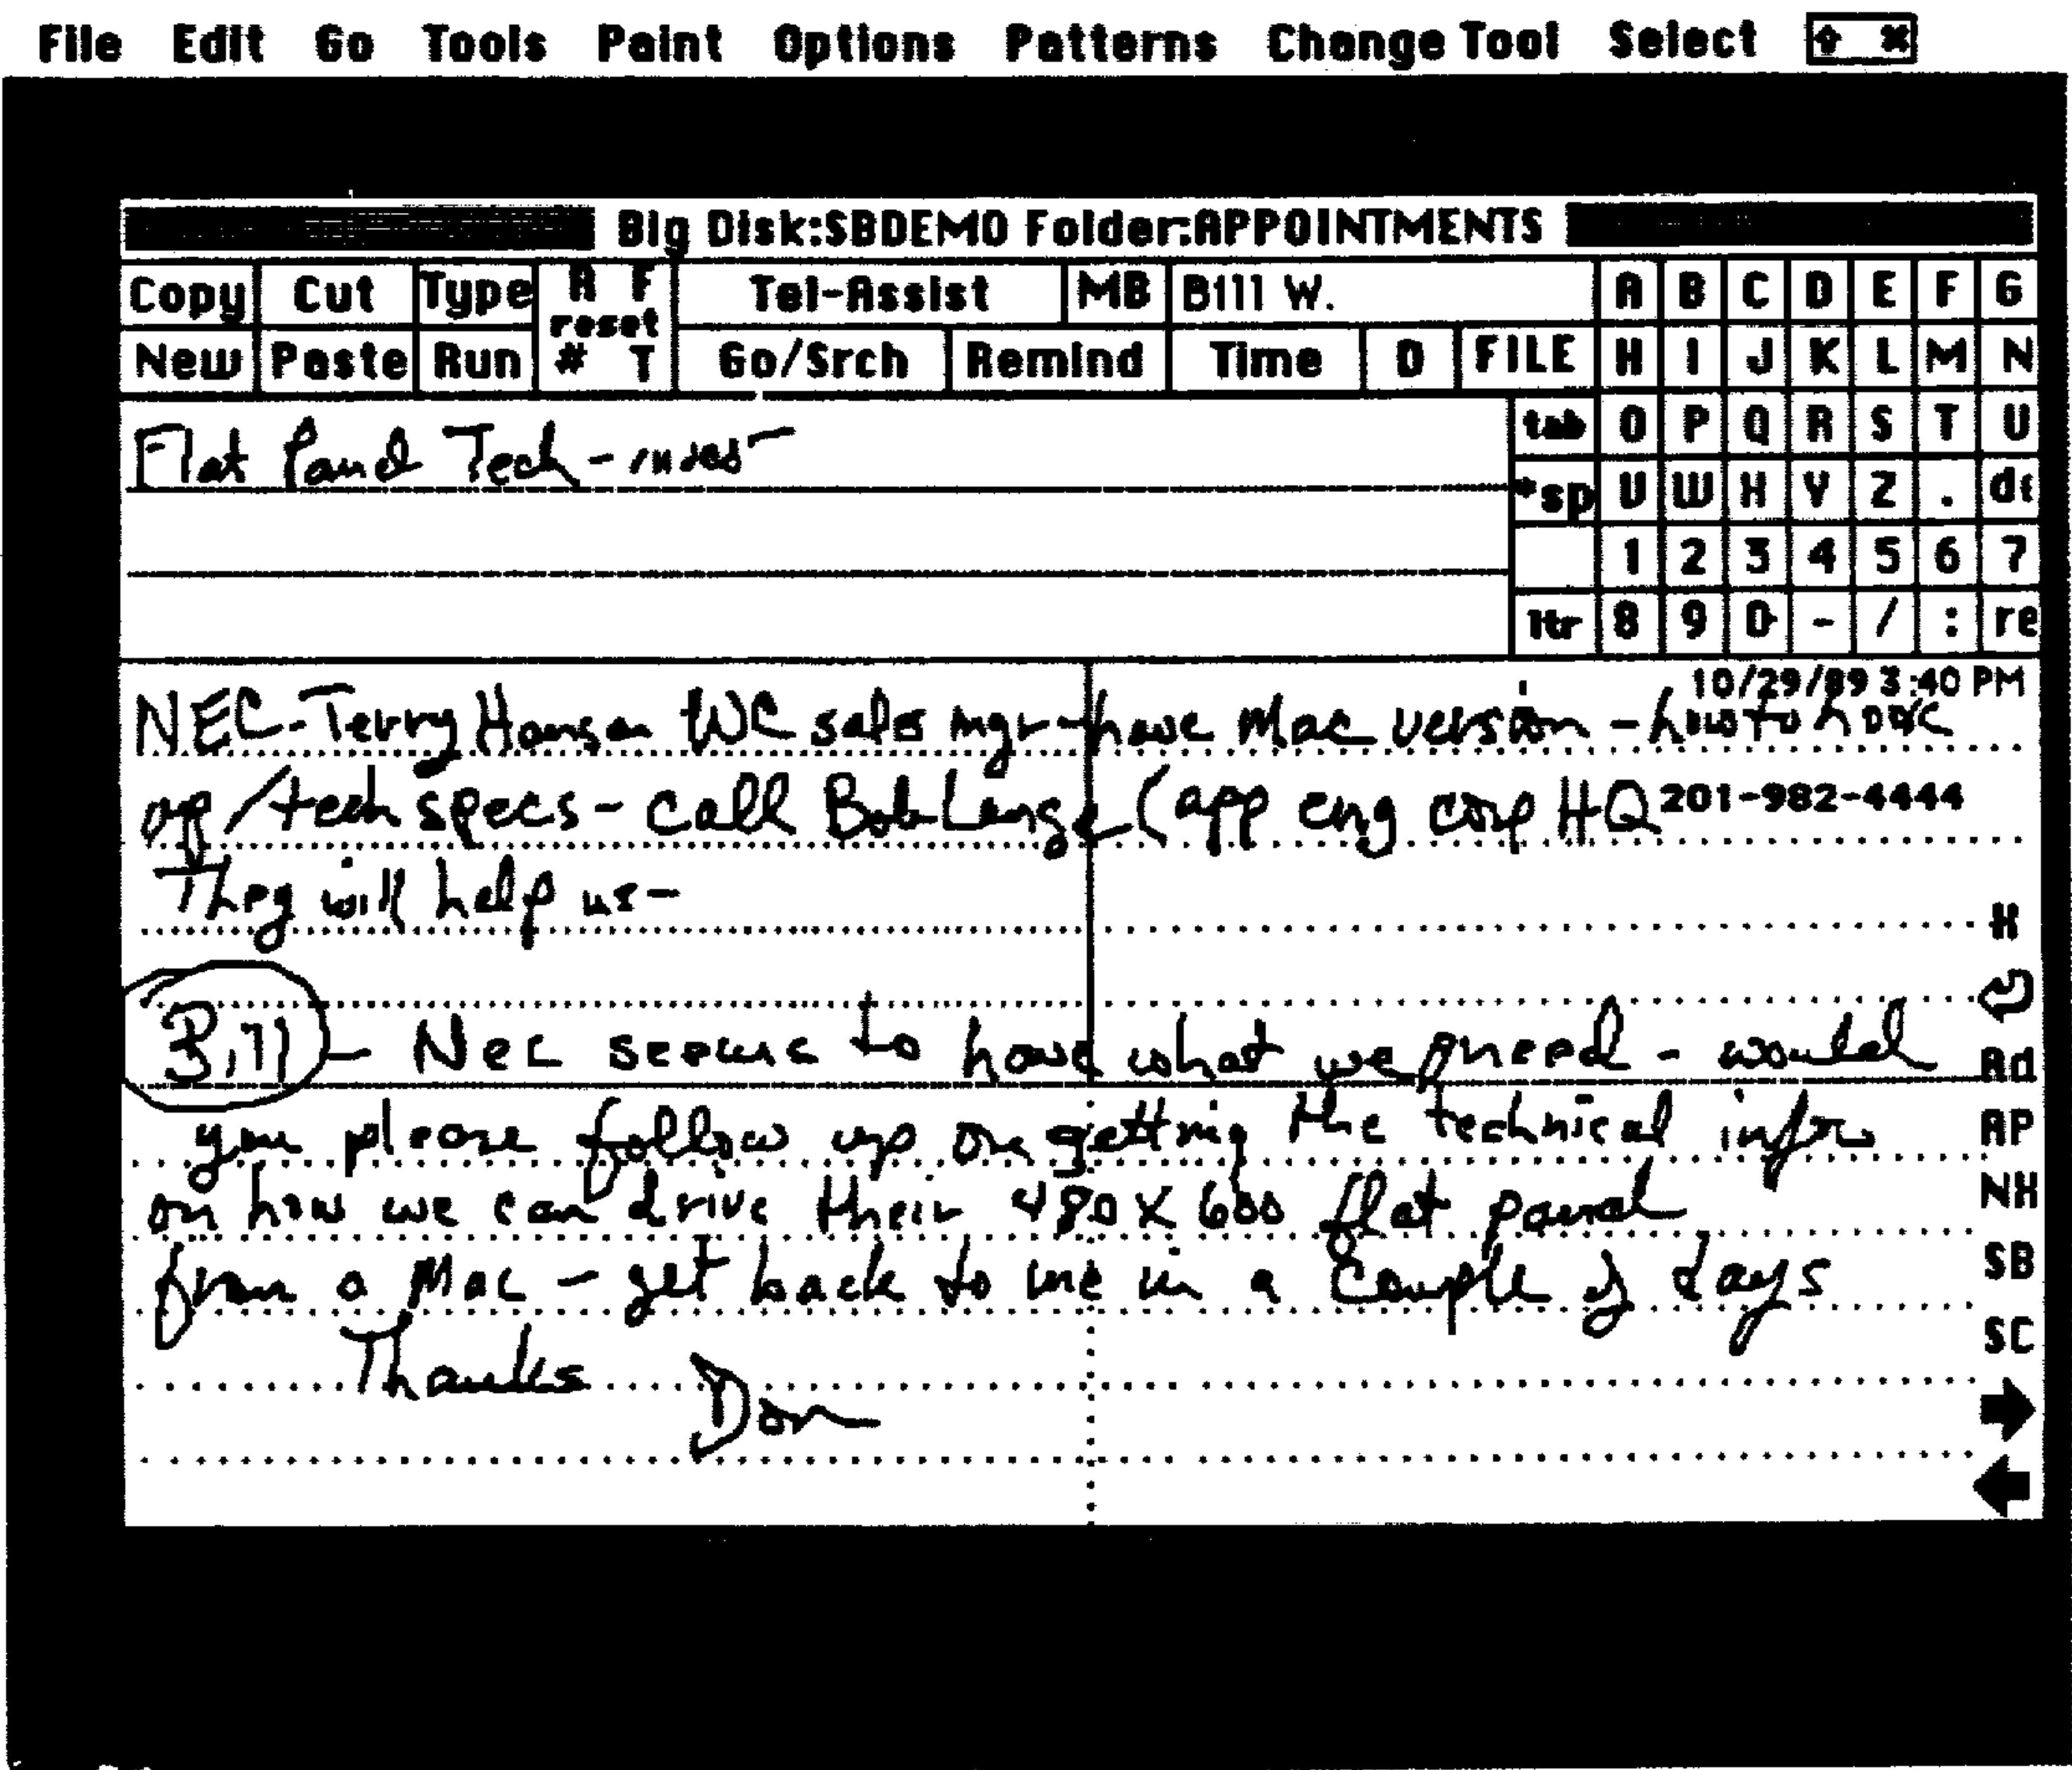 File Edit Go Tools Paint Options Patterns Change Tool Select
Big Disk:SBDEMO Folder:APPOINTMENTS
Copy Cut Type A F Tel-Assist MB Bill W. A B C D E F G
reset
New Paste Run # T Go/Srch Remind Time D FILE H I J K L M N
Flat Panel Tech - tab O P Q R S T U
sp V W X Y Z .
1 2 3 4 5 6 7
ltr 8 9 0 - / : re
10/29/89 3:40 PM
NEC-Terry Hansen WC sales mgr-have Mac version - how to hook
up /tech specs - call Bob Lange (app eng corp HQ 201-982-4444
They will help us-
H
Bill - Nec seems to have what we need - would
Ad
you please follow up on getting the technical info
AP
on how we can drive their 480 X 600 flat panel
NH
from a Mac - get back to me in a couple of days
SB
SC
Thanks
Don